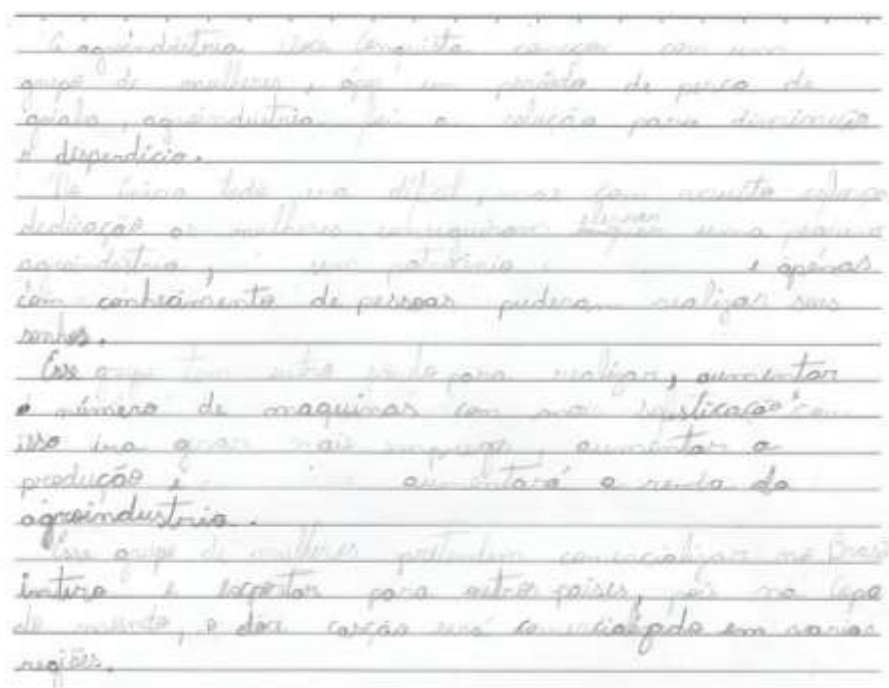 A agroindústria doce conquista começou com um
grupo de mulheres, após um período de perca de
goiaba, agroindustria foi a solução para diminuição
o disperdício.
No início tudo era difícil, mas com muito esforço
dedicação as mulheres conseguiram uma pequena
agroindustria, um patrimônio e apenas
com conhecimento de pessoas puderam realizar seus
sonhos.
Esse grupo tem outro sonho para realizar, aumentar
o número de maquinas com mais com
isso ira gerar mais emprego, aumentar a
produção e aumentará a renda da
agroindustria.
Esse grupo de mulheres pretendem comercializar no Brasil
inteiro e exportar para outros países, pois na Copa
do mundo, o doce será comercializado em varias
regiões.